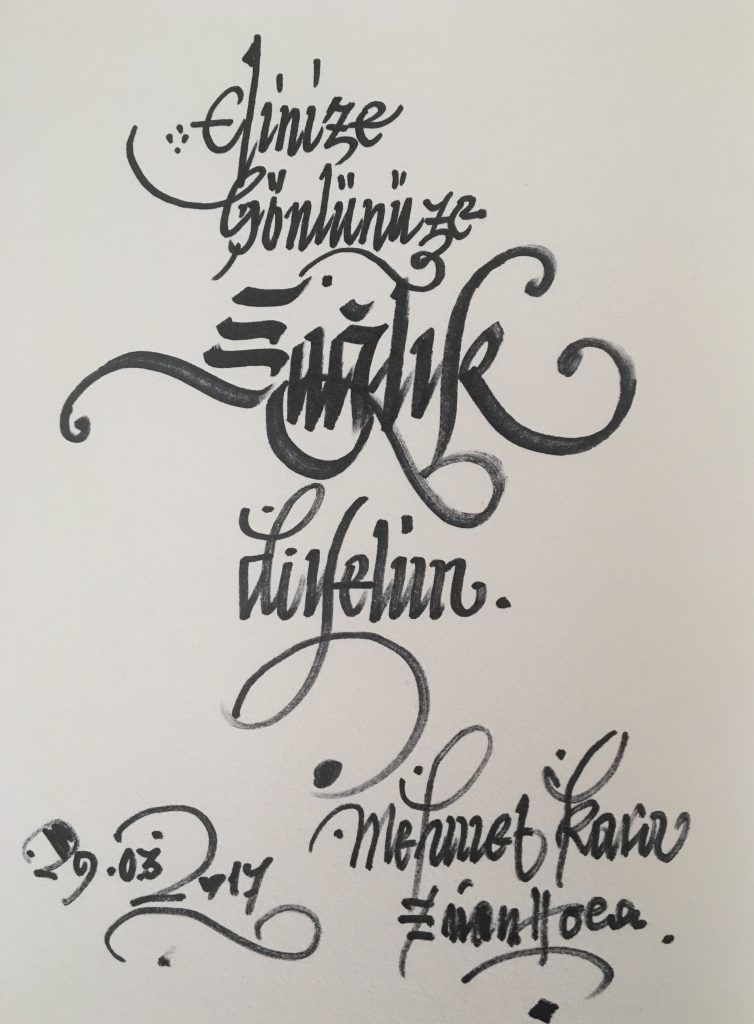 Elinize
Gönlünüze
Sağlık
diyelim.
29.03.2017
Mehmet Kara
Hoca.